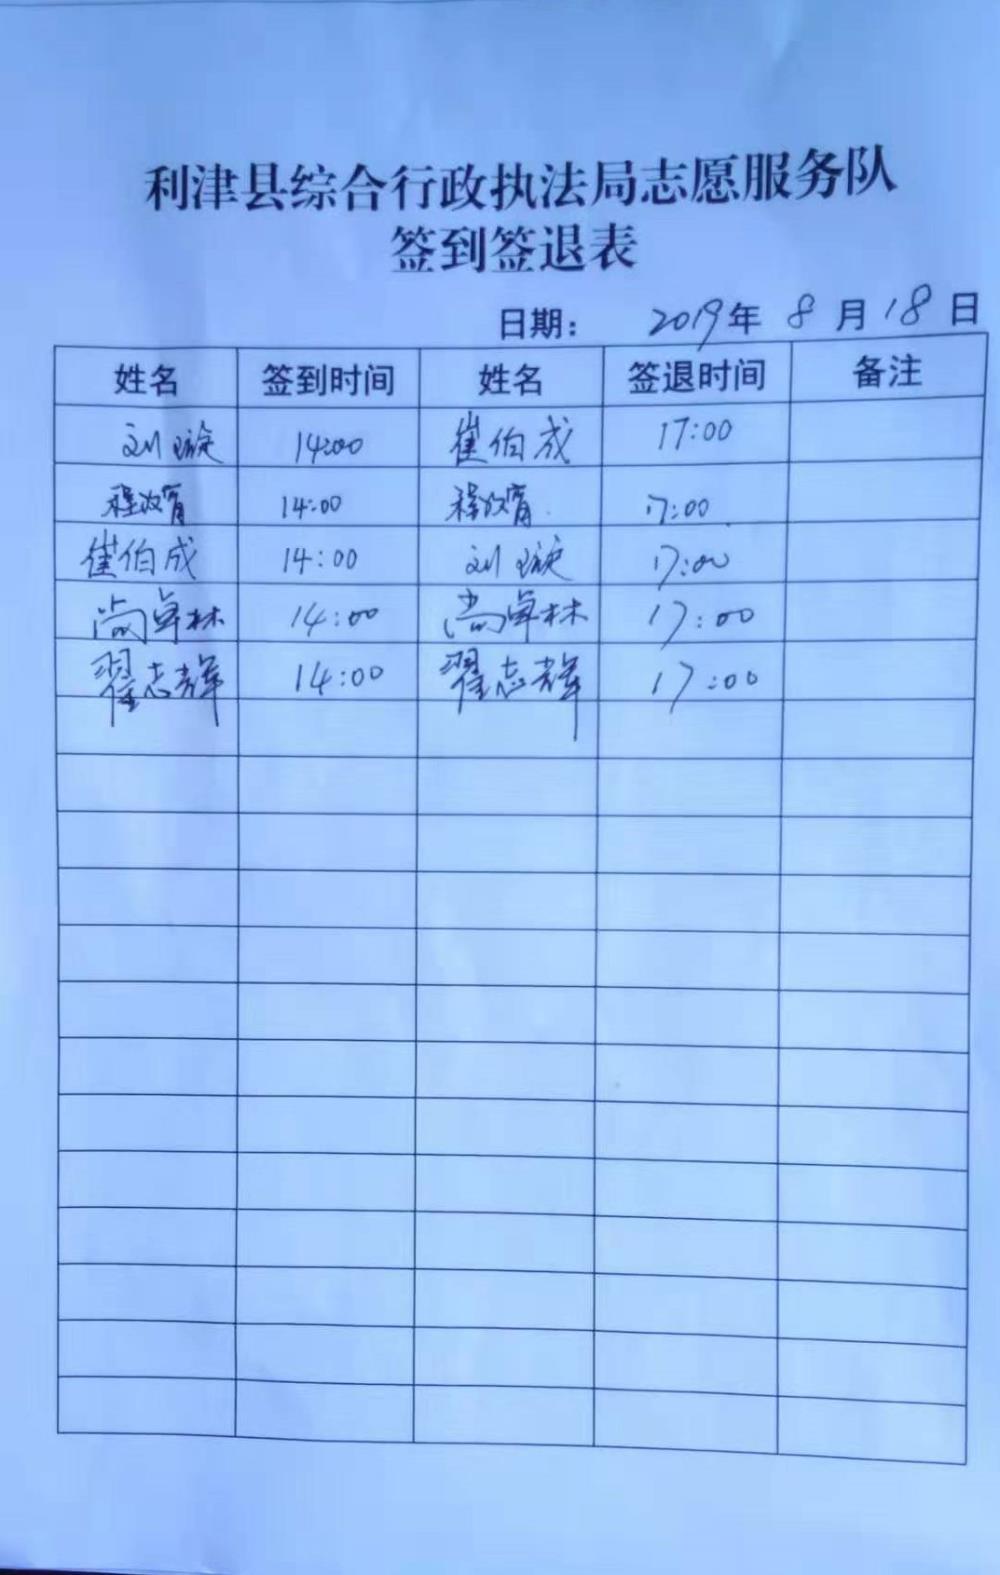 利津县综合行政执法局志愿服务队
签到签退表
日期： 2019年 8 月 18 日
姓名 签到时间 姓名 签退时间 备注
刘璇 14:00 崔伯成 17:00
14:00 17:00
崔伯成 14:00 刘璇 17:00
尚卓林 14:00 尚卓林 17:00
翟志辉 14:00 翟志辉 17:00